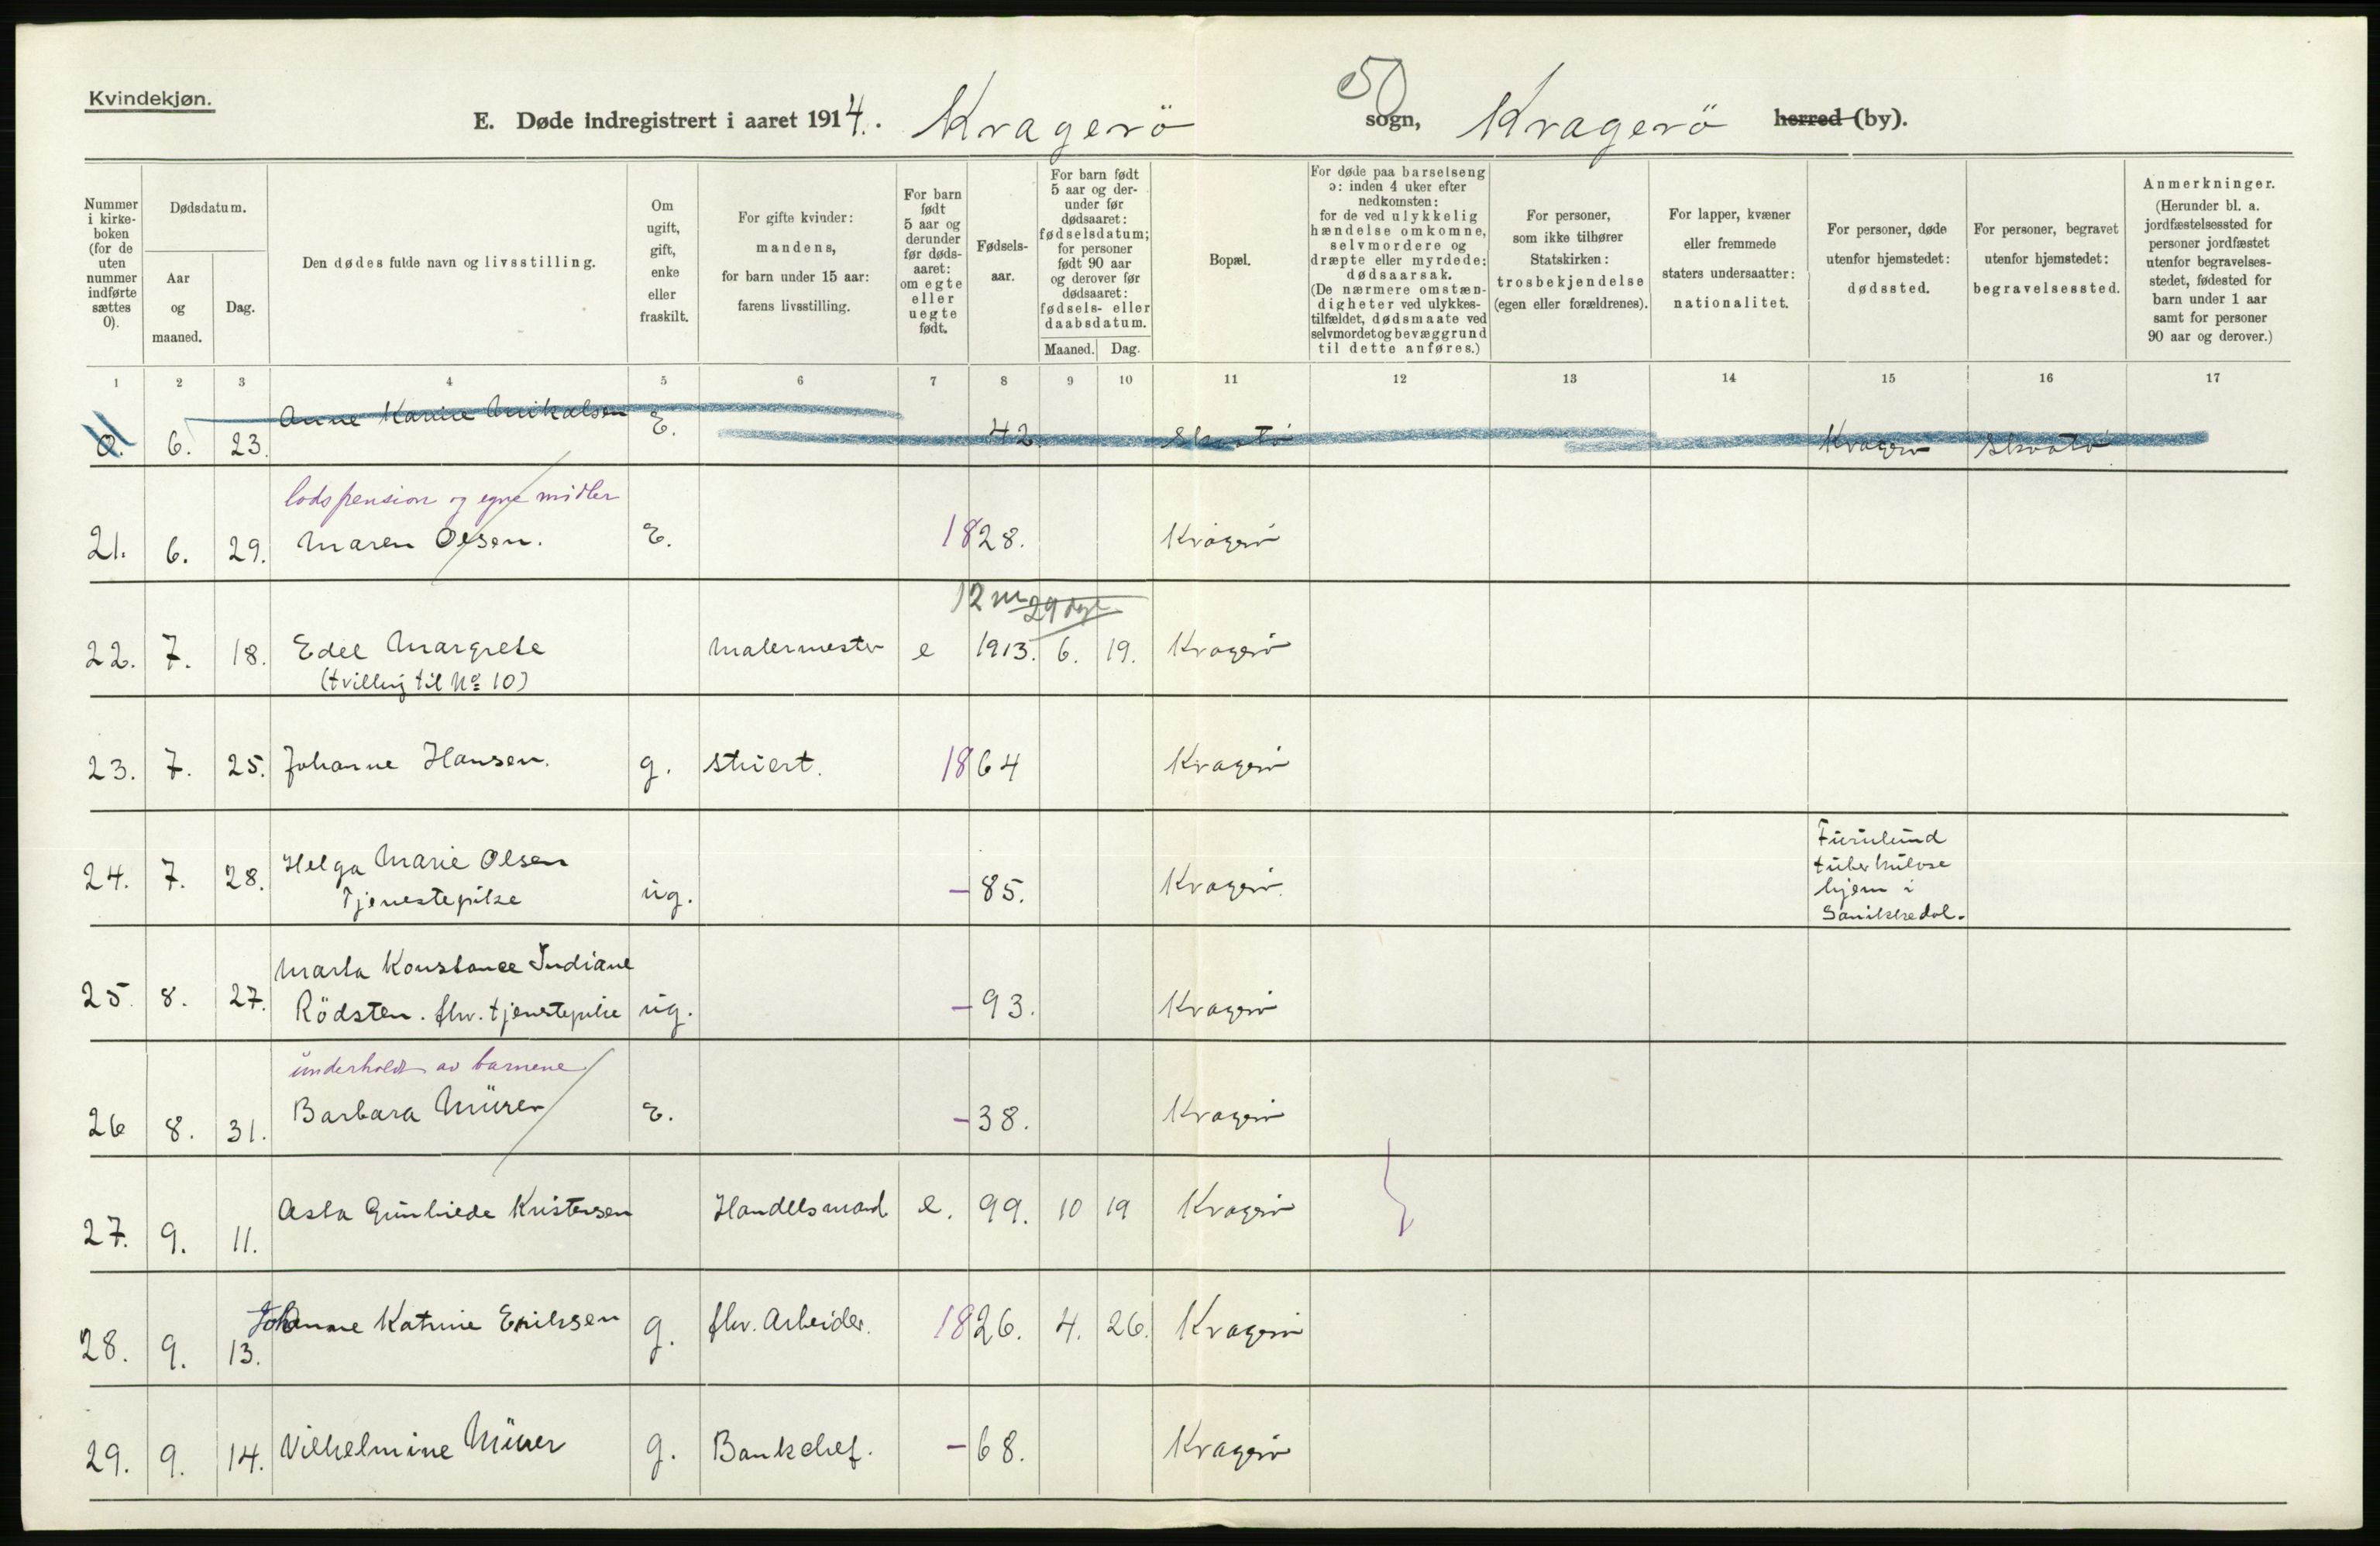 Kvindekjøn.
50
E. Døde indregistrert i aaret 1914. Kragerö sogn, Kragerö herred (by).
Nummer i kirke-boken (for de uten nummer indførte sættes 0).
Dødsdatum.
Aar og maaned.
Dag.
Den dødes fulde navn og livsstilling.
Om ugift, gift, enke eller fraskilt.
For gifte kvinder: mandens, for barn under 15 aar: farens livsstilling.
For barn født 5 aar og derunder før døds-aaret: om egte eller uegte født.
Fødsels-aar.
For barn født 5 aar og der-under før dødsaaret: fødselsdatum; for personer født 90 aar og derover før dødsaaret: fødsels- eller daabsdatum.
Maaned. Dag.
Bopæl.
For døde paa barselseng ɔ: inden 4 uker efter nedkomsten: for de ved ulykkelig hændelse omkomne, selvmordere og dræpte eller myrdede: dødsaarsak. (De nærmere omstæn-digheter ved ulykkes-tilfældet, dødsmaate ved selvmordet og bevæggrund til dette anføres.)
For personer, som ikke tilhører Statskirken: trosbekjendelse (egen eller forældrenes).
For lapper, kvæner eller fremmede staters undersaatter: nationalitet.
For personer, døde utenfor hjemstedet: dødssted.
For personer, begravet utenfor hjemstedet: begravelsessted.
Anmerkninger. (Herunder bl. a. jordfæstelsessted for personer jordfæstet utenfor begravelses-stedet, fødested for barn under 1 aar samt for personer 90 aar og derover.)
1 2 3 4 5 6 7 8 9 10 11 12 13 14 15 16 17
0. 6. 23. Anne Karine Mikalsen E. 42 Skaatö Kragerö Skaatö
lodspension og egne midler
21. 6. 29. Maren Olsen. E. 1828. Kragerö
12 m 29 dage
22. 7. 18. Edel Margrete Malermester e 1913. 6. 19. Kragerö
(tvilling til No 10)
23. 7. 25. Johanne Hansen. g. Stuert. 1864 Kragerö
24. 7. 28. Helga Marie Olsen
Tjenestepike ug. - 85. Kragerö.
Furulund
tuberkulose
hjem i
Sannikedal.
25. 8. 27. Marta Konstance Indiane
Rödsten. fhv. tjenestepike ug. - 93. Kragerö
underholdt av barnene
26 8. 31. Barbara Mürer E. - 38. Kragerö
27. 9. 11. Asta Gunhilde Kristensen Handelsmand e. 99. 10 19 Kragerö
28. 9. 13. Johanne Katrine Eriksen g. fhv. Arbeider. 1826. 4. 26. Kragerö
29. 9. 14. Vilhelmine Mürer g. Bankchef. - 68. Kragerö